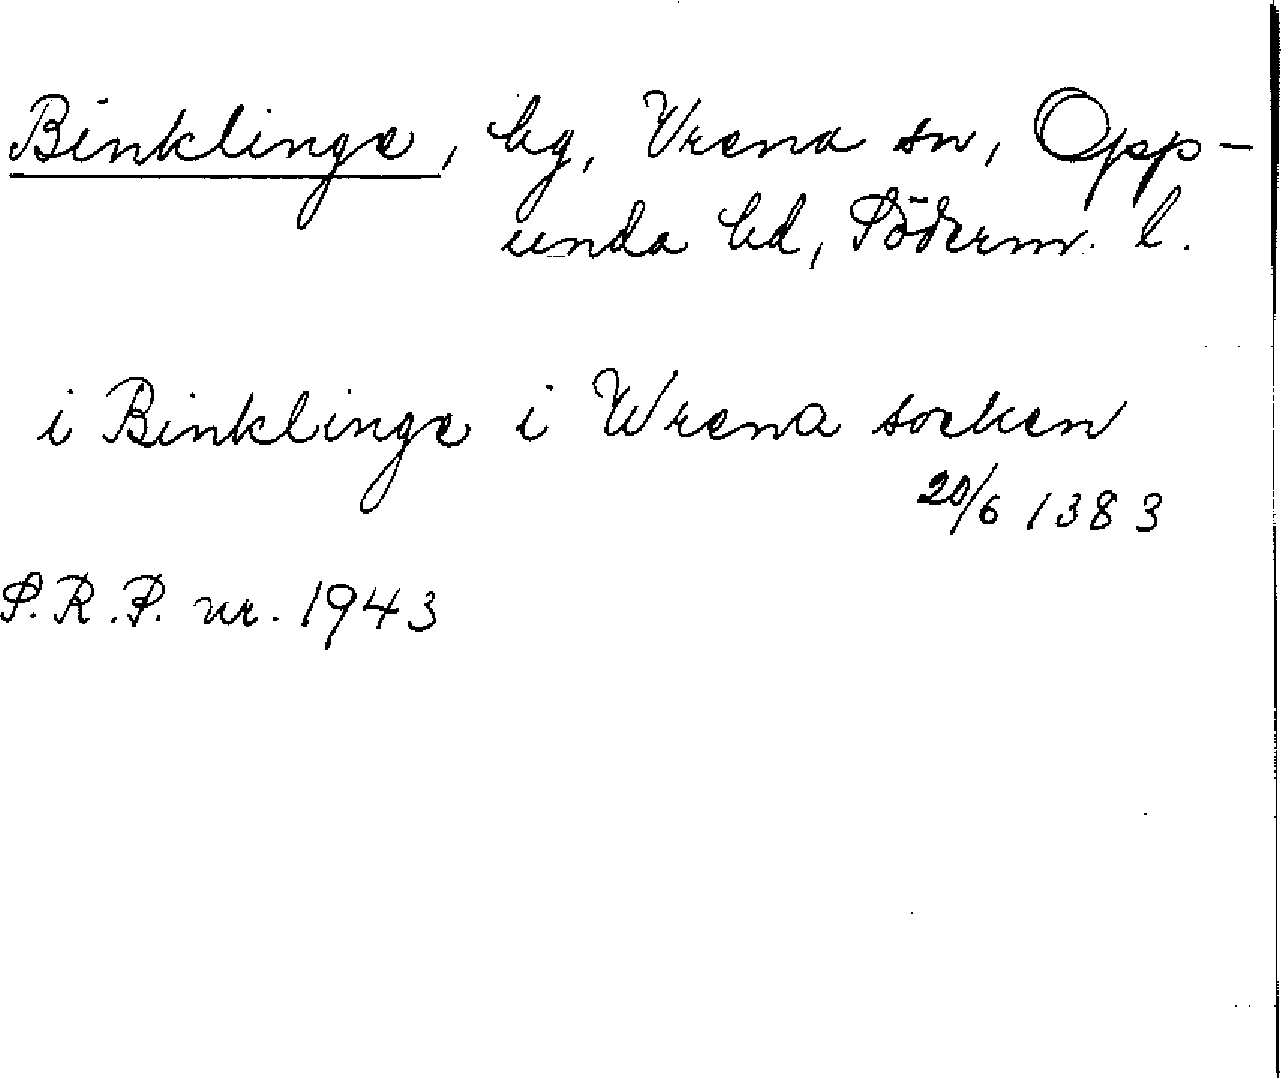 Binklinge, by, Vrena sn, Opp-
unda hd, Söderm. l.
i Binklinge i Wrena socken
20/6 1383
S.R.P. nr. 1943